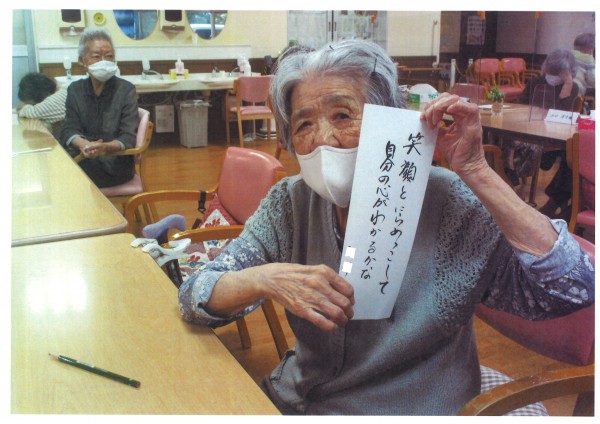 笑顔とにらめっこして
自分の心がわかるかな